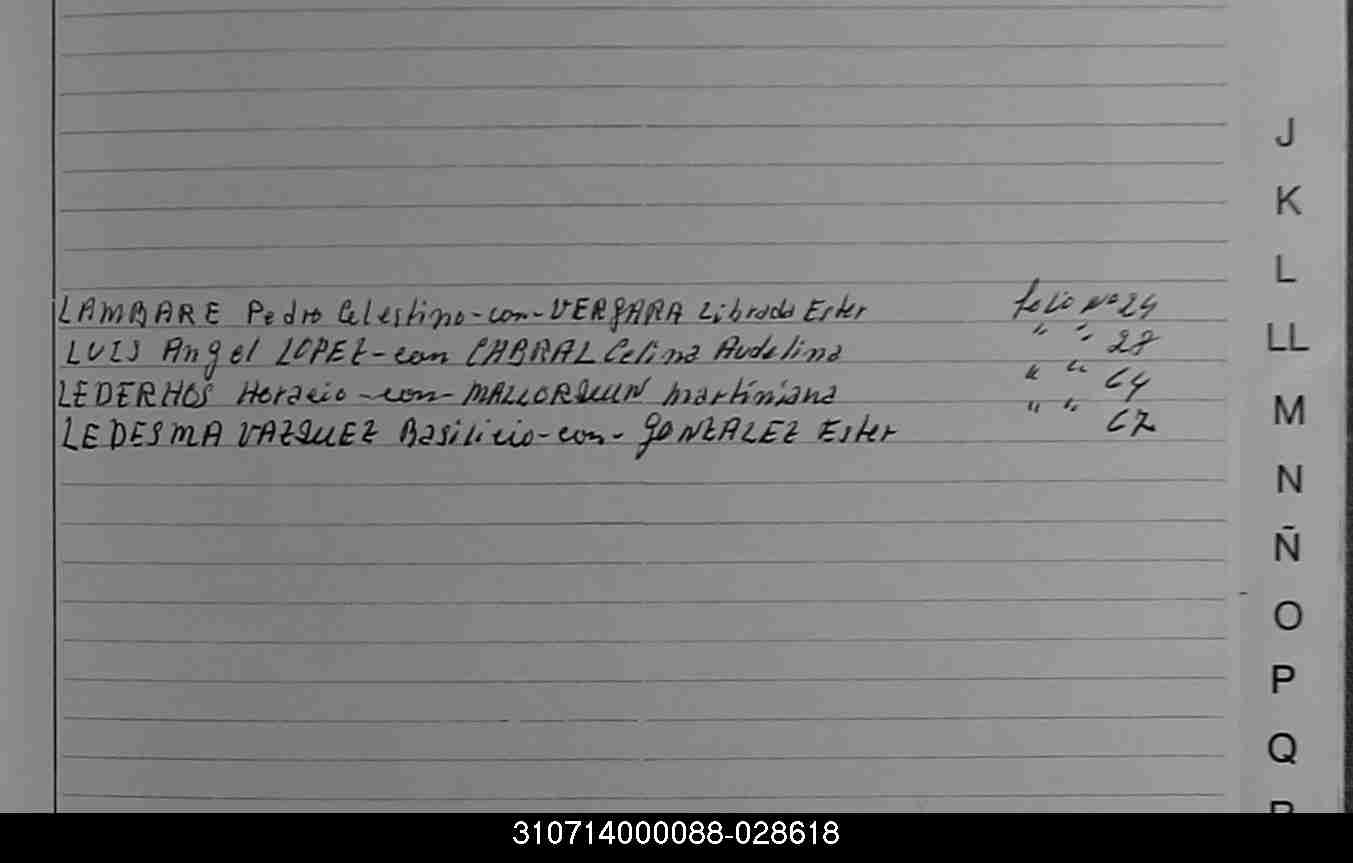 J
K
L
LAMBARE Pedro Celestino-con-VERGARA Librada Ester folio Nº 24
LL
LUIS Angel LOPEZ-con CABRAL Celina Audelina " " 28
LEDERHOS Horacio-con-MALLORQUIN Martiniana " " 64
M
LEDESMA VAZQUEZ Basilicio-con-GONZALEZ Ester " " 67
N
Ñ
O
P
Q
310714000088-028618